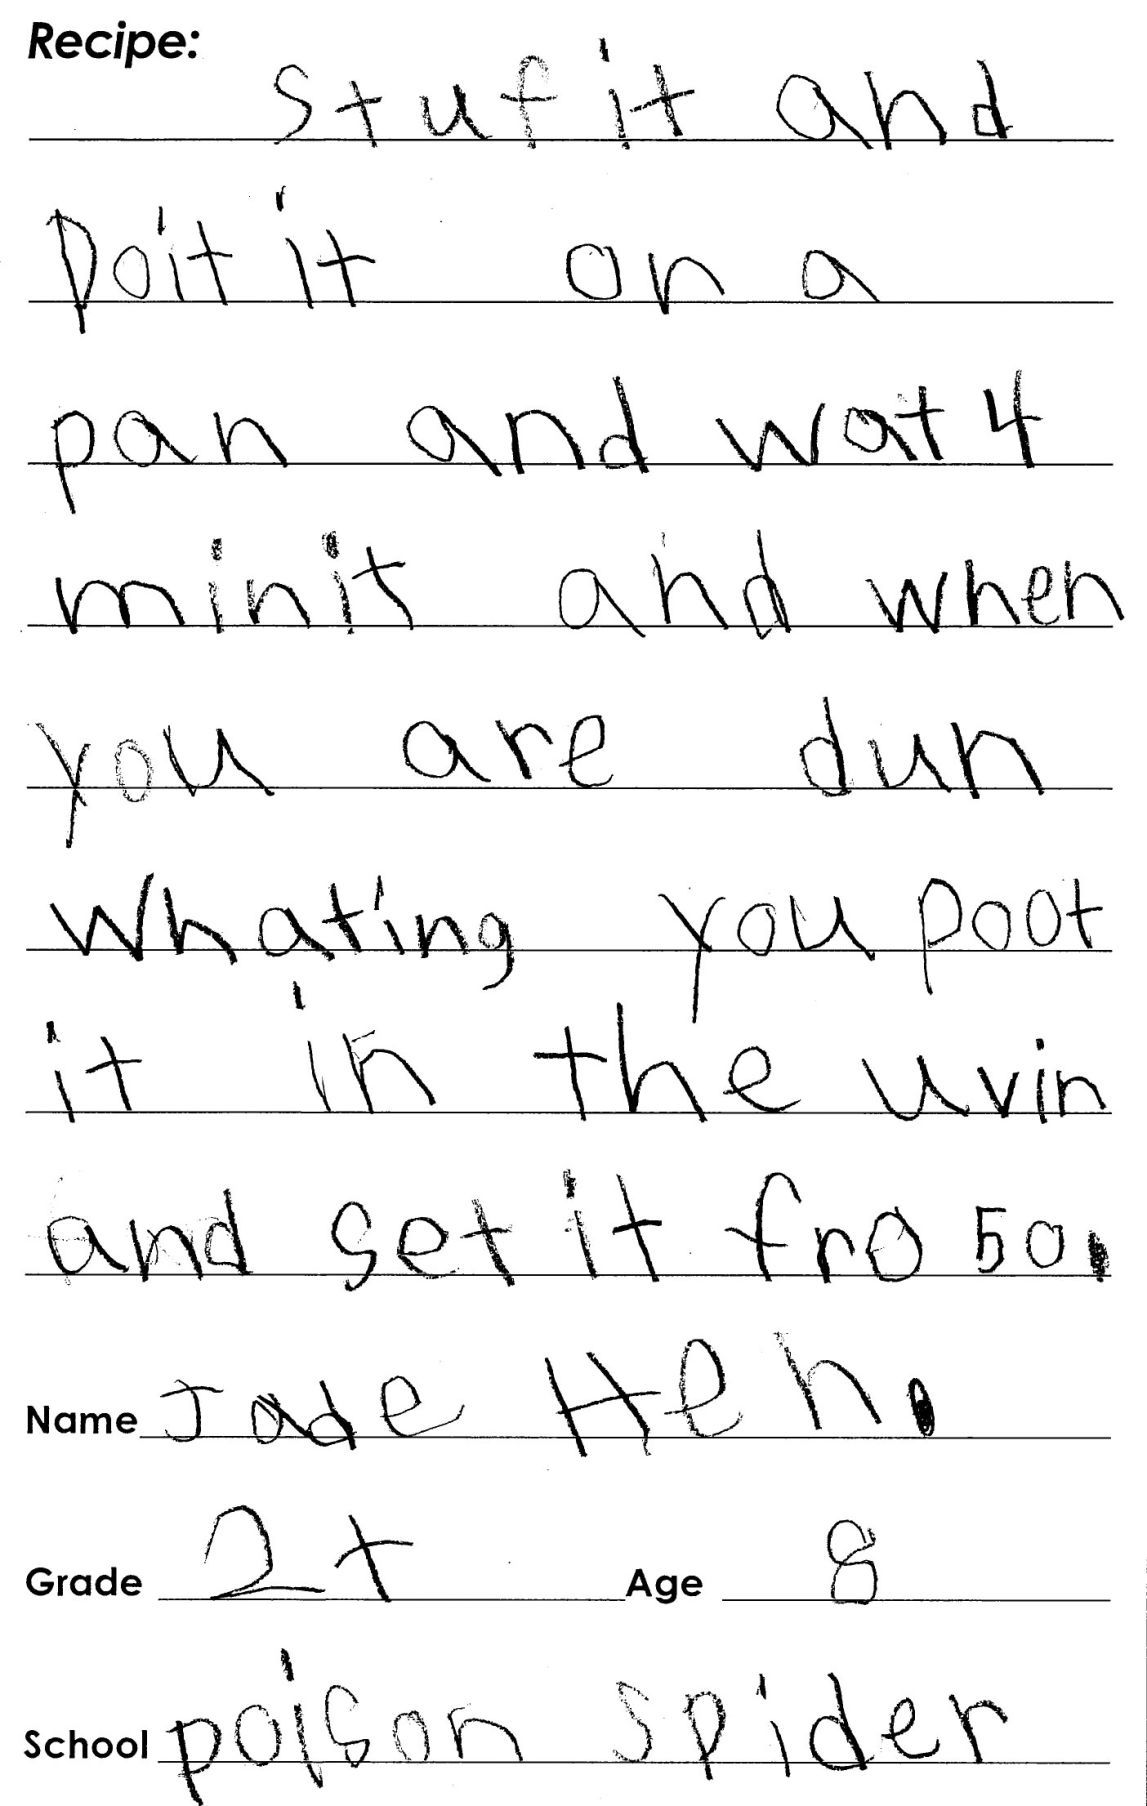 Recipe:
Stuf it and
Doit it on a
pan and wat 4
minit and when
you are dun
whating you poot
it in the uvin
and set it fro 50.
Name Jade Heh.
Grade 2t Age 8
School poison spider